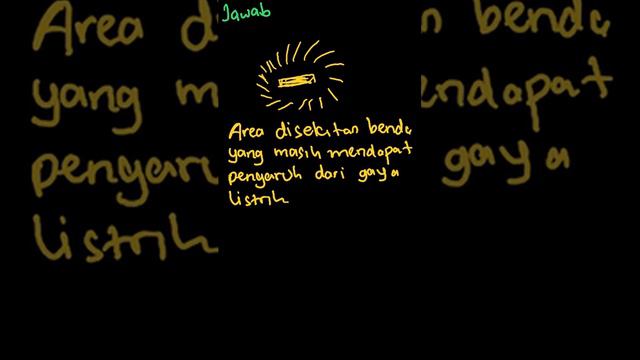 Jawab
Area disekitan benda
yang masih mendapat
pengaruh dari gaya
listrik